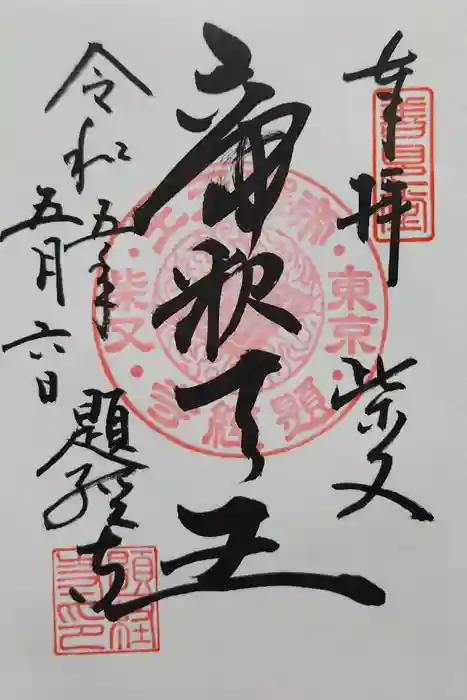 奉拝 柴又
帝釈天王
令和五年
五月六日
題経寺
東京
柴又
題經寺